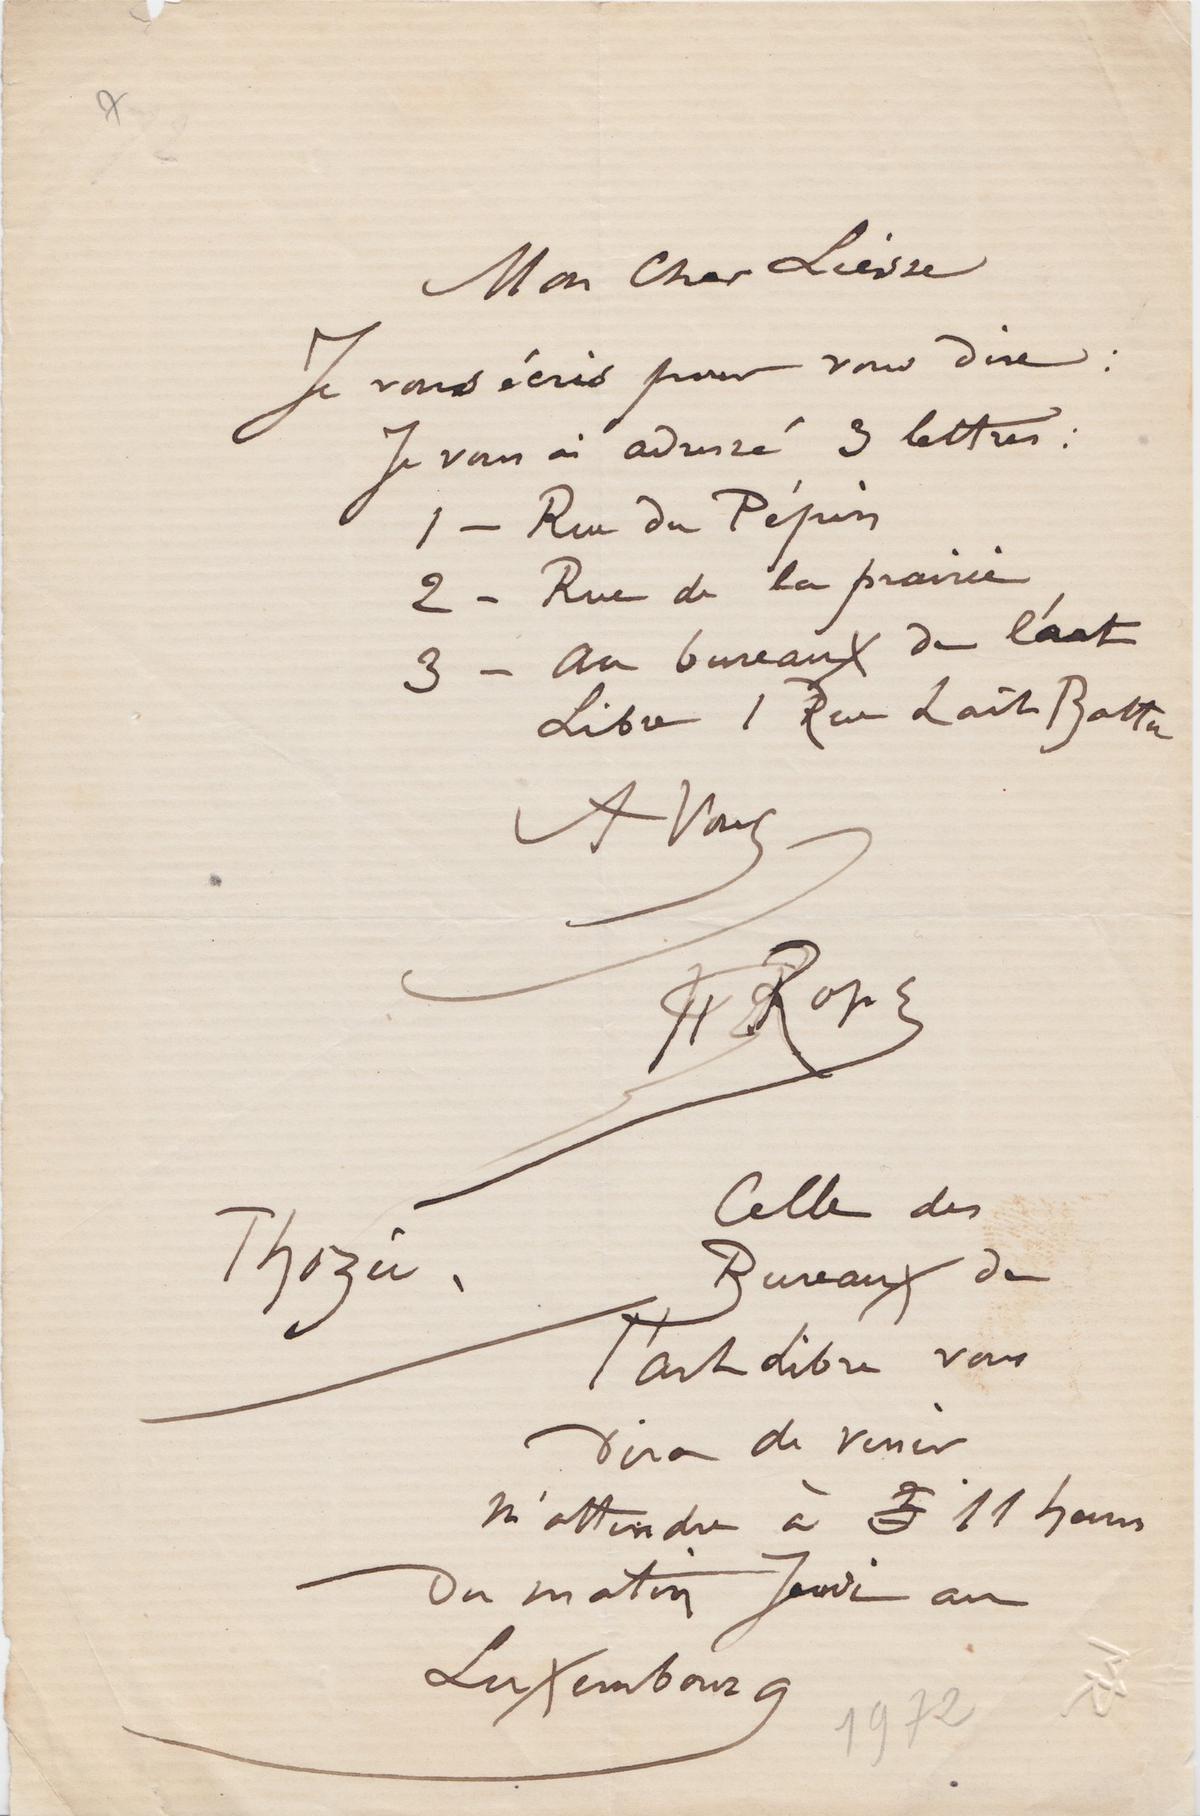 Mon Cher Liesse
Je vous écris pour vous dire :
Je vous ai adressé 3 lettres :
1 — Rue du Pépin
2 - Rue de la prairie
3 - Au bureaux de l'art
Libre 1 Rue
A Vous
Rops
Celle des
Thozée.
Bureaux de
l'art Libre vous
dira de venir
m'attendre à 11 heures
du matin Jeudi au
Luxembourg
1972